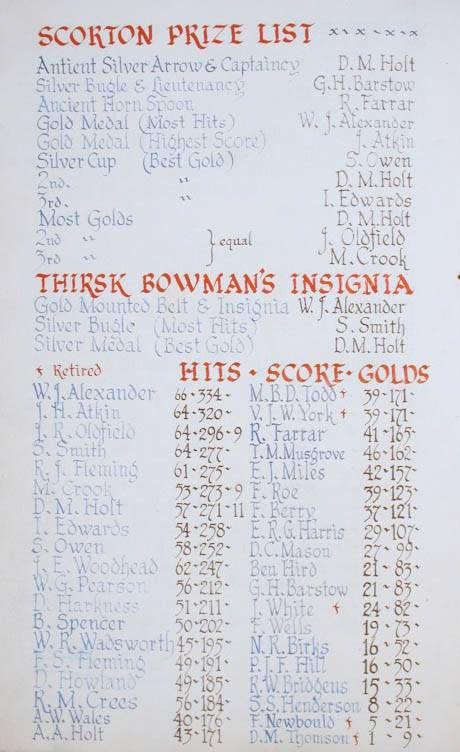 SCORTON PRIZE LIST
Antient Silver Arrow & Captaincy D. M. Holt
Silver Bugle & Lieutenancy G. H. Barstow
Ancient Horn Spoon R. Farrar
Gold Medal (Most Hits) W. J. Alexander
Gold Medal (Highest Score) J. Atkin
Silver Cup (Best Gold) S. Owen
2nd. " D. M. Holt
3rd. " I. Edwards
Most Golds D. M. Holt
2nd " } equal J. Oldfield
3rd " M. Crook
THIRSK BOWMAN'S INSIGNIA
Gold Mounted Belt & Insignia W. J. Alexander
Silver Bugle (Most Hits) S. Smith
Silver Medal (Best Gold) D. M. Holt
† Retired HITS · SCORE · GOLDS
W. J. Alexander 66-334-
J. H. Atkin 64-320-
J. R. Oldfield 64-296-9
S. Smith 64-277-
R. J. Fleming 61-275-
M. Crook 53-273-9
D. M. Holt 57-271-11
I. Edwards 54-258-
S. Owen 58-252-
J. E. Woodhead 62-247-
W. G. Pearson 56-212-
D. Harkness 51-211-
B. Spencer 50-202-
W. R. Wadsworth 45-195-
F. S. Fleming 49-191-
D. Howland 49-185-
R. M. Crees 56-184-
A. W. Wales 40-176-
A. A. Holt 43-171
M. B. D. Todd † 39-171-
V. J. W. York † 39-171-
R. Farrar 41-165-
T. M. Musgrove 46-162-
E. J. Miles 42-157-
F. Roe 39-123-
F. Berry 37-121-
E. R. G. Harris 29-107-
D. C. Mason 27-99-
Ben Hird 21-83-
G. H. Barstow 21-83-
J. White † 24-82-
F. Wells 19-73-
N. R. Birks 16-52-
P. J. F. Hill 16-50-
R. W. Bridgens 15-33-
S. S. Henderson 8-22-
F. Newbould † 5-21-
D. M. Thomson † 1-9-